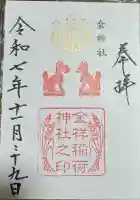 奉拝
金神社
金祥稲荷
神社之印
令和七年十一月二十九日